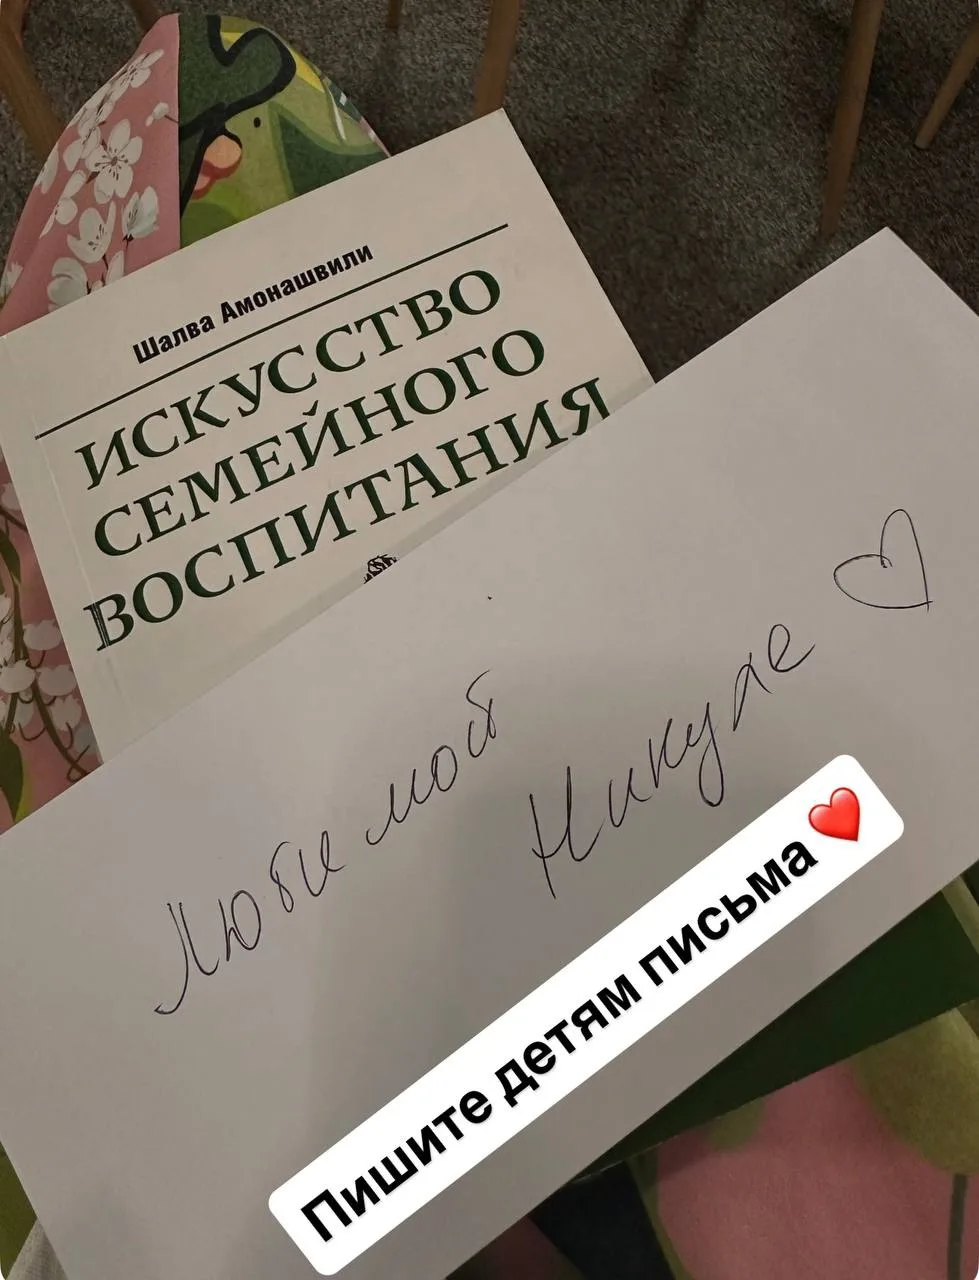 Шалва Амонашвили
ИСКУССТВО
СЕМЕЙНОГО
ВОСПИТАНИЯ
Любимой
Никухе
Пишите детям письма❤️